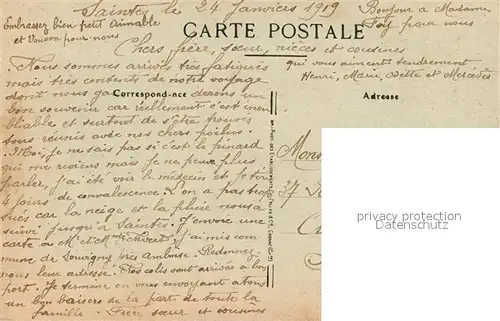 Saintes le 24 Janvier 1919
Embrassez bien petit Aimable
et Vouvon pour nous
Bonjour à Madame
Foy para nous
CARTE POSTALE
Chers frère, sœur, nièces et cousines
Nous sommes arrivés très fatigués
mais très contents de notre voyage
dont nous garderons un
Correspondance
Adresse
qui vous aiment tendrement
Henri, Marie, Dette et Mercédès
bon souvenir car réellement c'est inou
bliable et surtout de s'être trouvés
tous réunis avec nos chers poilus.
Moi, je ne sais pas si c'est le pinard
qui me revient mais je ne peux plus
parler, j'ai été voir le médecin et je tire
4 jours de convalescence. L'on a pas trop
tués car la neige et la pluie nous a
suivi jusqu'à Saintes. J'envoie une
carte à Mr et Mme j'ai mis com
mune de Souvigny près Amboise. Redonnez
nous leur adresse. Nos colis sont arrivés à bon
port. Je termine en vous envoyant à tous
un bon baisers de la part de toute la
famille. Frère sœur et cousines
Mons
37
privacy protection